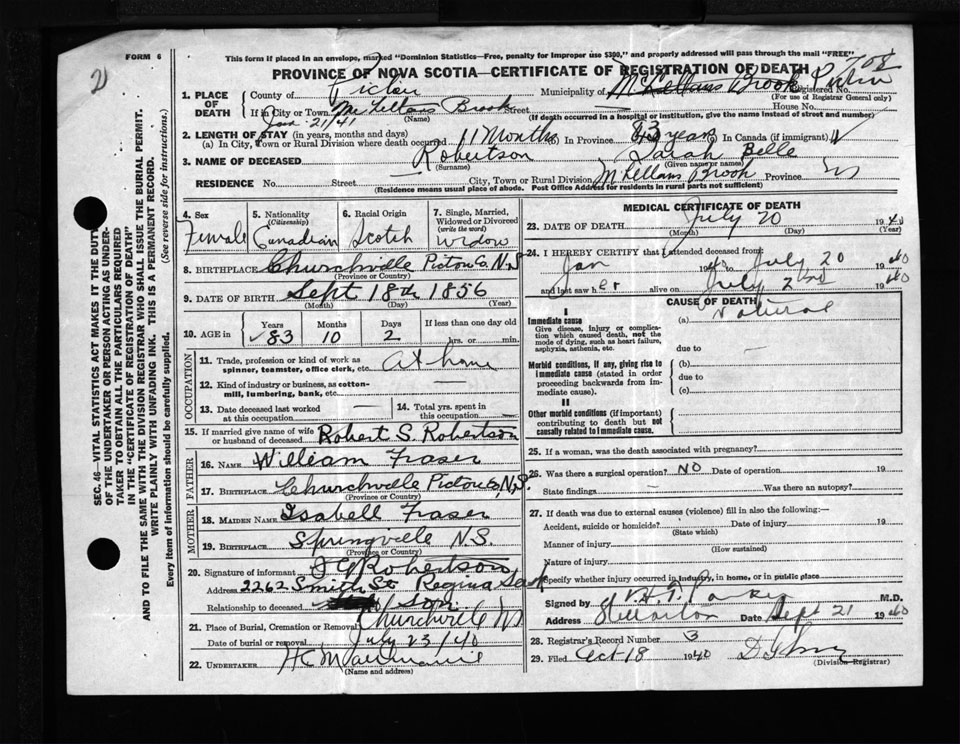 2
FORM 6
This form if placed in an envelope, marked "Dominion Statistics—Free, penalty for improper use $300," and properly addressed will pass through the mail "FREE"
PROVINCE OF NOVA SCOTIA—CERTIFICATE OF REGISTRATION OF DEATH
SEC. 46—VITAL STATISTICS ACT MAKES IT THE DUTY
OF THE UNDERTAKER OR PERSON ACTING AS UNDER-
TAKER TO OBTAIN ALL THE PARTICULARS REQUIRED
IN THE "CERTIFICATE OF REGISTRATION OF DEATH"
AND TO FILE THE SAME WITH THE DIVISION REGISTRAR WHO SHALL ISSUE THE BURIAL PERMIT.
WRITE PLAINLY WITH UNFADING INK. THIS IS A PERMANENT RECORD.
Every item of Information should be carefully supplied. (See reverse side for instructions.)
1. PLACE OF DEATH
County of Pictou Municipality of McLellans Brook Pictou Registered No.
(For use of Registrar General only)
If in City or Town McLellans Brook Street House No.
(Name) (If death occurred in a hospital or institution, give the name instead of street and number)
Jan 21/41
2. LENGTH OF STAY (in years, months and days)
(a) In City, Town or Rural Division where death occurred 11 Months (b) In Province 83 years (c) In Canada (if immigrant)
3. NAME OF DECEASED Robertson Sarah Belle
(Surname) (Given name or names)
RESIDENCE No. Street City, Town or Rural Division McLellans Brook Province NS
(Residence means usual place of abode. Post Office Address for residents in rural parts not sufficient)
4. Sex Female
5. Nationality (Citizenship) Canadian
6. Racial Origin Scotch
7. Single, Married, Widowed or Divorced (write the word) Widow
8. BIRTHPLACE Churchville Pictou Co. N.S
(Province or Country)
9. DATE OF BIRTH Sept 18th 1856
(Month) (Day) (Year)
10. AGE in Years 83 Months 10 Days 2 If less than one day old hrs. or min.
OCCUPATION
11. Trade, profession or kind of work as spinner, teamster, office clerk, etc. At home
12. Kind of industry or business, as cotton-mill, lumbering, bank, etc. —
13. Date deceased last worked at this occupation —
14. Total yrs. spent in this occupation —
15. If married give name of wife or husband of deceased Robert S. Robertson
FATHER
16. NAME William Fraser
17. BIRTHPLACE Churchville Pictou Co, N.S.
(Province or Country)
MOTHER
18. MAIDEN NAME Isabell Fraser
19. BIRTHPLACE Springville N.S.
(Province or Country)
20. Signature of informant Robertson
Address 2262 Smith St Regina Sask
Relationship to deceased Son
21. Place of Burial, Cremation or Removal Churchville NS
Date of burial or removal July 23/40
22. UNDERTAKER
(Name and address)
MEDICAL CERTIFICATE OF DEATH
23. DATE OF DEATH July 20 1940
(Month) (Day) (Year)
24. I HEREBY CERTIFY that I attended deceased from
Jan 1940 to July 20 1940
and last saw her alive on July 2nd 1940
CAUSE OF DEATH
I
Immediate cause
Give disease, injury or complication which caused death, not the mode of dying, such as heart failure, asphyxia, asthenia, etc.
(a) Natural
due to —
Morbid conditions, if any, giving rise to immediate cause (stated in order proceeding backwards from immediate cause).
(b)
due to
(c)
II
Other morbid conditions (if important) contributing to death but not causally related to immediate cause.
25. If a woman, was the death associated with pregnancy?
26. Was there a surgical operation? NO Date of operation 19
State findings — Was there an autopsy?
27. If death was due to external causes (violence) fill in also the following:—
Accident, suicide or homicide? Date of injury 19
(State which)
Manner of injury
(How sustained)
Nature of injury
Specify whether injury occurred in industry, in home, or in public place
Signed by M.D.
Address Stellarton Date Sept 21 1940
28. Registrar's Record Number 3
29. Filed Oct 18 1940
(Division Registrar)